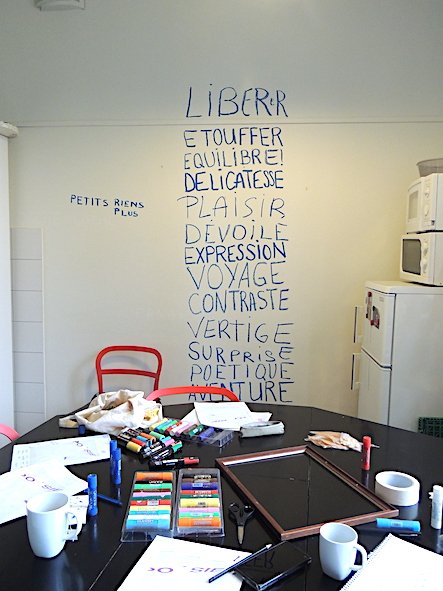 LIBERER
ETOUFFER
EQUILIBRE!
DELICATESSE
PETITS RIENS
PLUS
PLAISIR
DEVOILE
EXPRESSION
VOYAGE
CONTRASTE
VERTIGE
SURPRISE
POETIQUE
AVENTURE